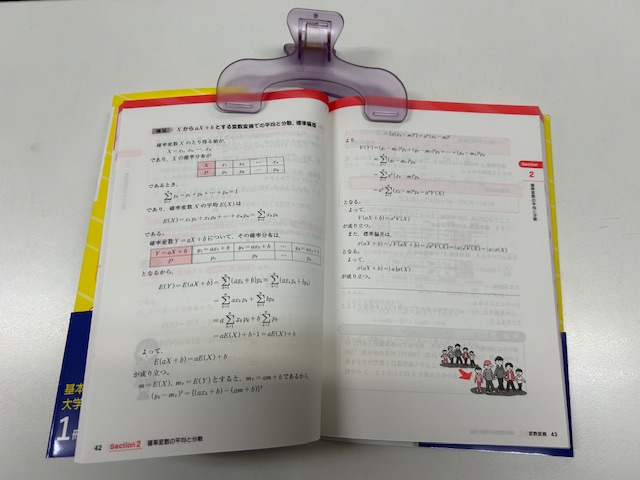 補足 XからaX+bとする変数変換での平均と分散，標準偏差
確率変数Xのとり得る値が，
X=x₁, x₂, …, xₙ
であり，Xの確率分布が
X x₁ x₂ … xₙ
P p₁ p₂ … pₙ
であるとき，
Σpₖ=p₁+p₂+…+pₙ=1
であり，確率変数Xの平均E(X)は
E(X)=x₁p₁+x₂p₂+…+xₙpₙ=Σxₖpₖ
である。
確率変数Y=aX+bについて，その確率分布は，
Y=aX+b y₁=ax₁+b y₂=ax₂+b … yₙ=axₙ+b
P p₁ p₂ … pₙ
となるから，
E(Y)=E(aX+b)=Σ(axₖ+b)pₖ=Σ(axₖpₖ+bpₖ)
=Σaxₖpₖ+Σbpₖ
=aΣxₖpₖ+bΣpₖ
=aE(X)+b·1=aE(X)+b
よって，
E(aX+b)=aE(X)+b
が成り立つ。
m=E(X), mᵧ=E(Y)とすると，mᵧ=am+bであるから，
(yₖ-mᵧ)²={(axₖ+b)-(am+b)}²
42 Section 2 確率変数の平均と分散
={a(xₖ-m)}²=a²(xₖ-m)²
より，
V(Y)=(y₁-mᵧ)²p₁+(y₂-mᵧ)²p₂+…+(yₙ-mᵧ)²pₙ
=Σ(yₖ-mᵧ)²pₖ
=Σa²(xₖ-m)²pₖ
=a²Σ(xₖ-m)²pₖ=a²V(X)
となる。
よって，
V(aX+b)=a²V(X)
が成り立つ。
また，標準偏差は，
σ(aX+b)=√V(aX+b)=√a²V(X)=|a|√V(X)=|a|σ(X)
となる。
よって，
σ(aX+b)=|a|σ(X)
が成り立つ。
Section
2
確率変数の平均と分散
変数変換 43
基本
大学
1冊